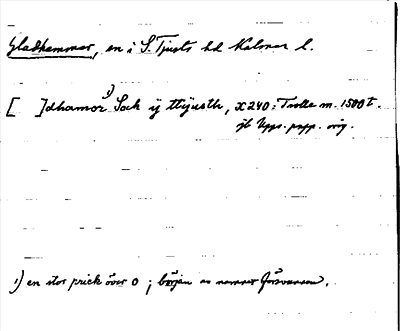 Gladhammar, en i S. Tjusts hd Kalmar l.
[ ]dhamor¹⁾ Sok ij ttijusth, X240: Trolle m. 1500 t.
jb Upps. papp. orig.
1) en stor prick över o ; början av namnet försvunnen.